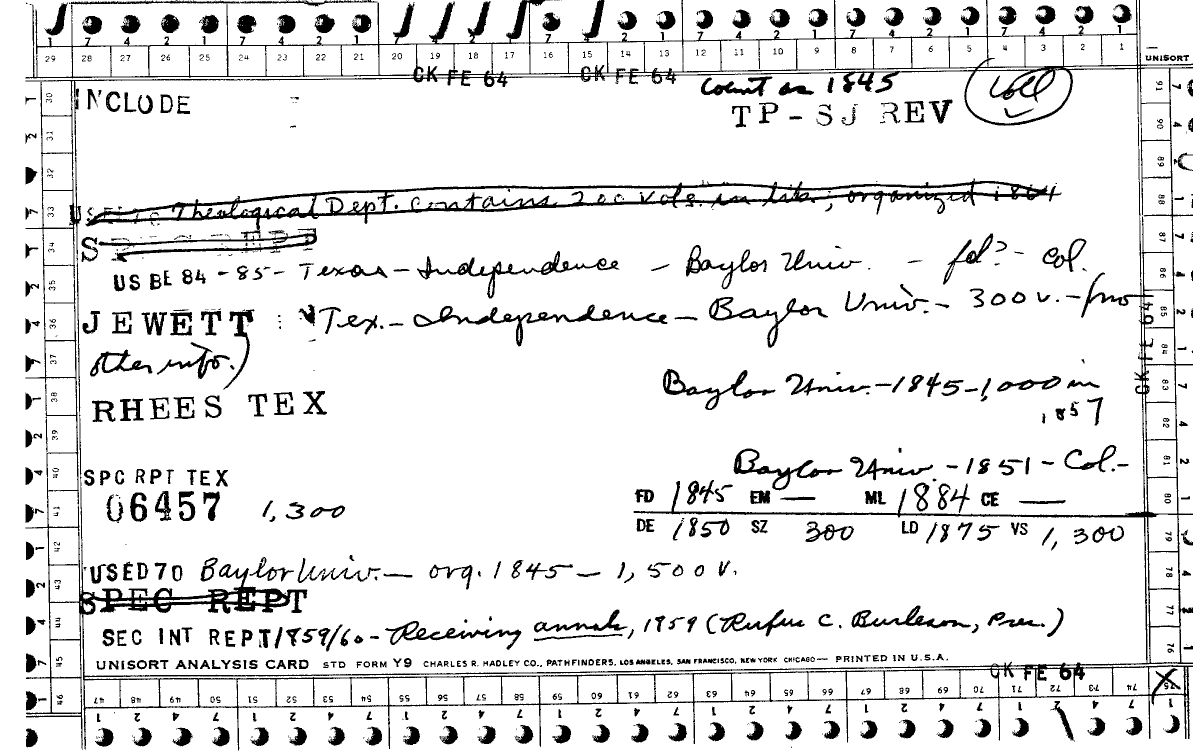 1 7 4 2 1 7 4 2 1 7 4 2 1 7 4 2 1 7 4 2 1
29 28 27 26 25 24 23 22 21 20 19 18 17 16 15 14 13 12 11 10 9 8 7 6 5 4 3 2 1 UNISORT
CK FE 64 CK FE 64
Count as 1845 Coll
INCLUDE
TP-SJ REV
USED 70 Theological Dept. contains 200 vols. in lib.; organized 1864
SPEC REPT
US BE 84-85- Texas - Independence - Baylor Univ. - fd? - Col.
JEWETT : Tex. - Independence - Baylor Univ. - 300 v. - (no
other info.)
CK FE 64
Baylor Univ. - 1845 - 1,000 in
1857
RHEES TEX
Baylor Univ - 1851 - Col. -
SPC RPT TEX
06457 1,300
FD 1845 EM — ML 1884 CE —
DE 1850 SZ 300 LD 1875 VS 1,300
USED70 Baylor Univ. - org. 1845 - 1,500 V.
SPEC REPT
SEC INT REPT/1859/60 - Receiving annals, 1959 (Rufus C. Burleson, Pres.)
UNISORT ANALYSIS CARD STD FORM Y9 CHARLES R. HADLEY CO., PATHFINDERS, LOS ANGELES, SAN FRANCISCO, NEW YORK CHICAGO— PRINTED IN U.S.A.
CK FE 64
47 48 49 50 51 52 53 54 55 56 57 58 59 60 61 62 63 64 65 66 67 68 69 70 71 72 73 74 75